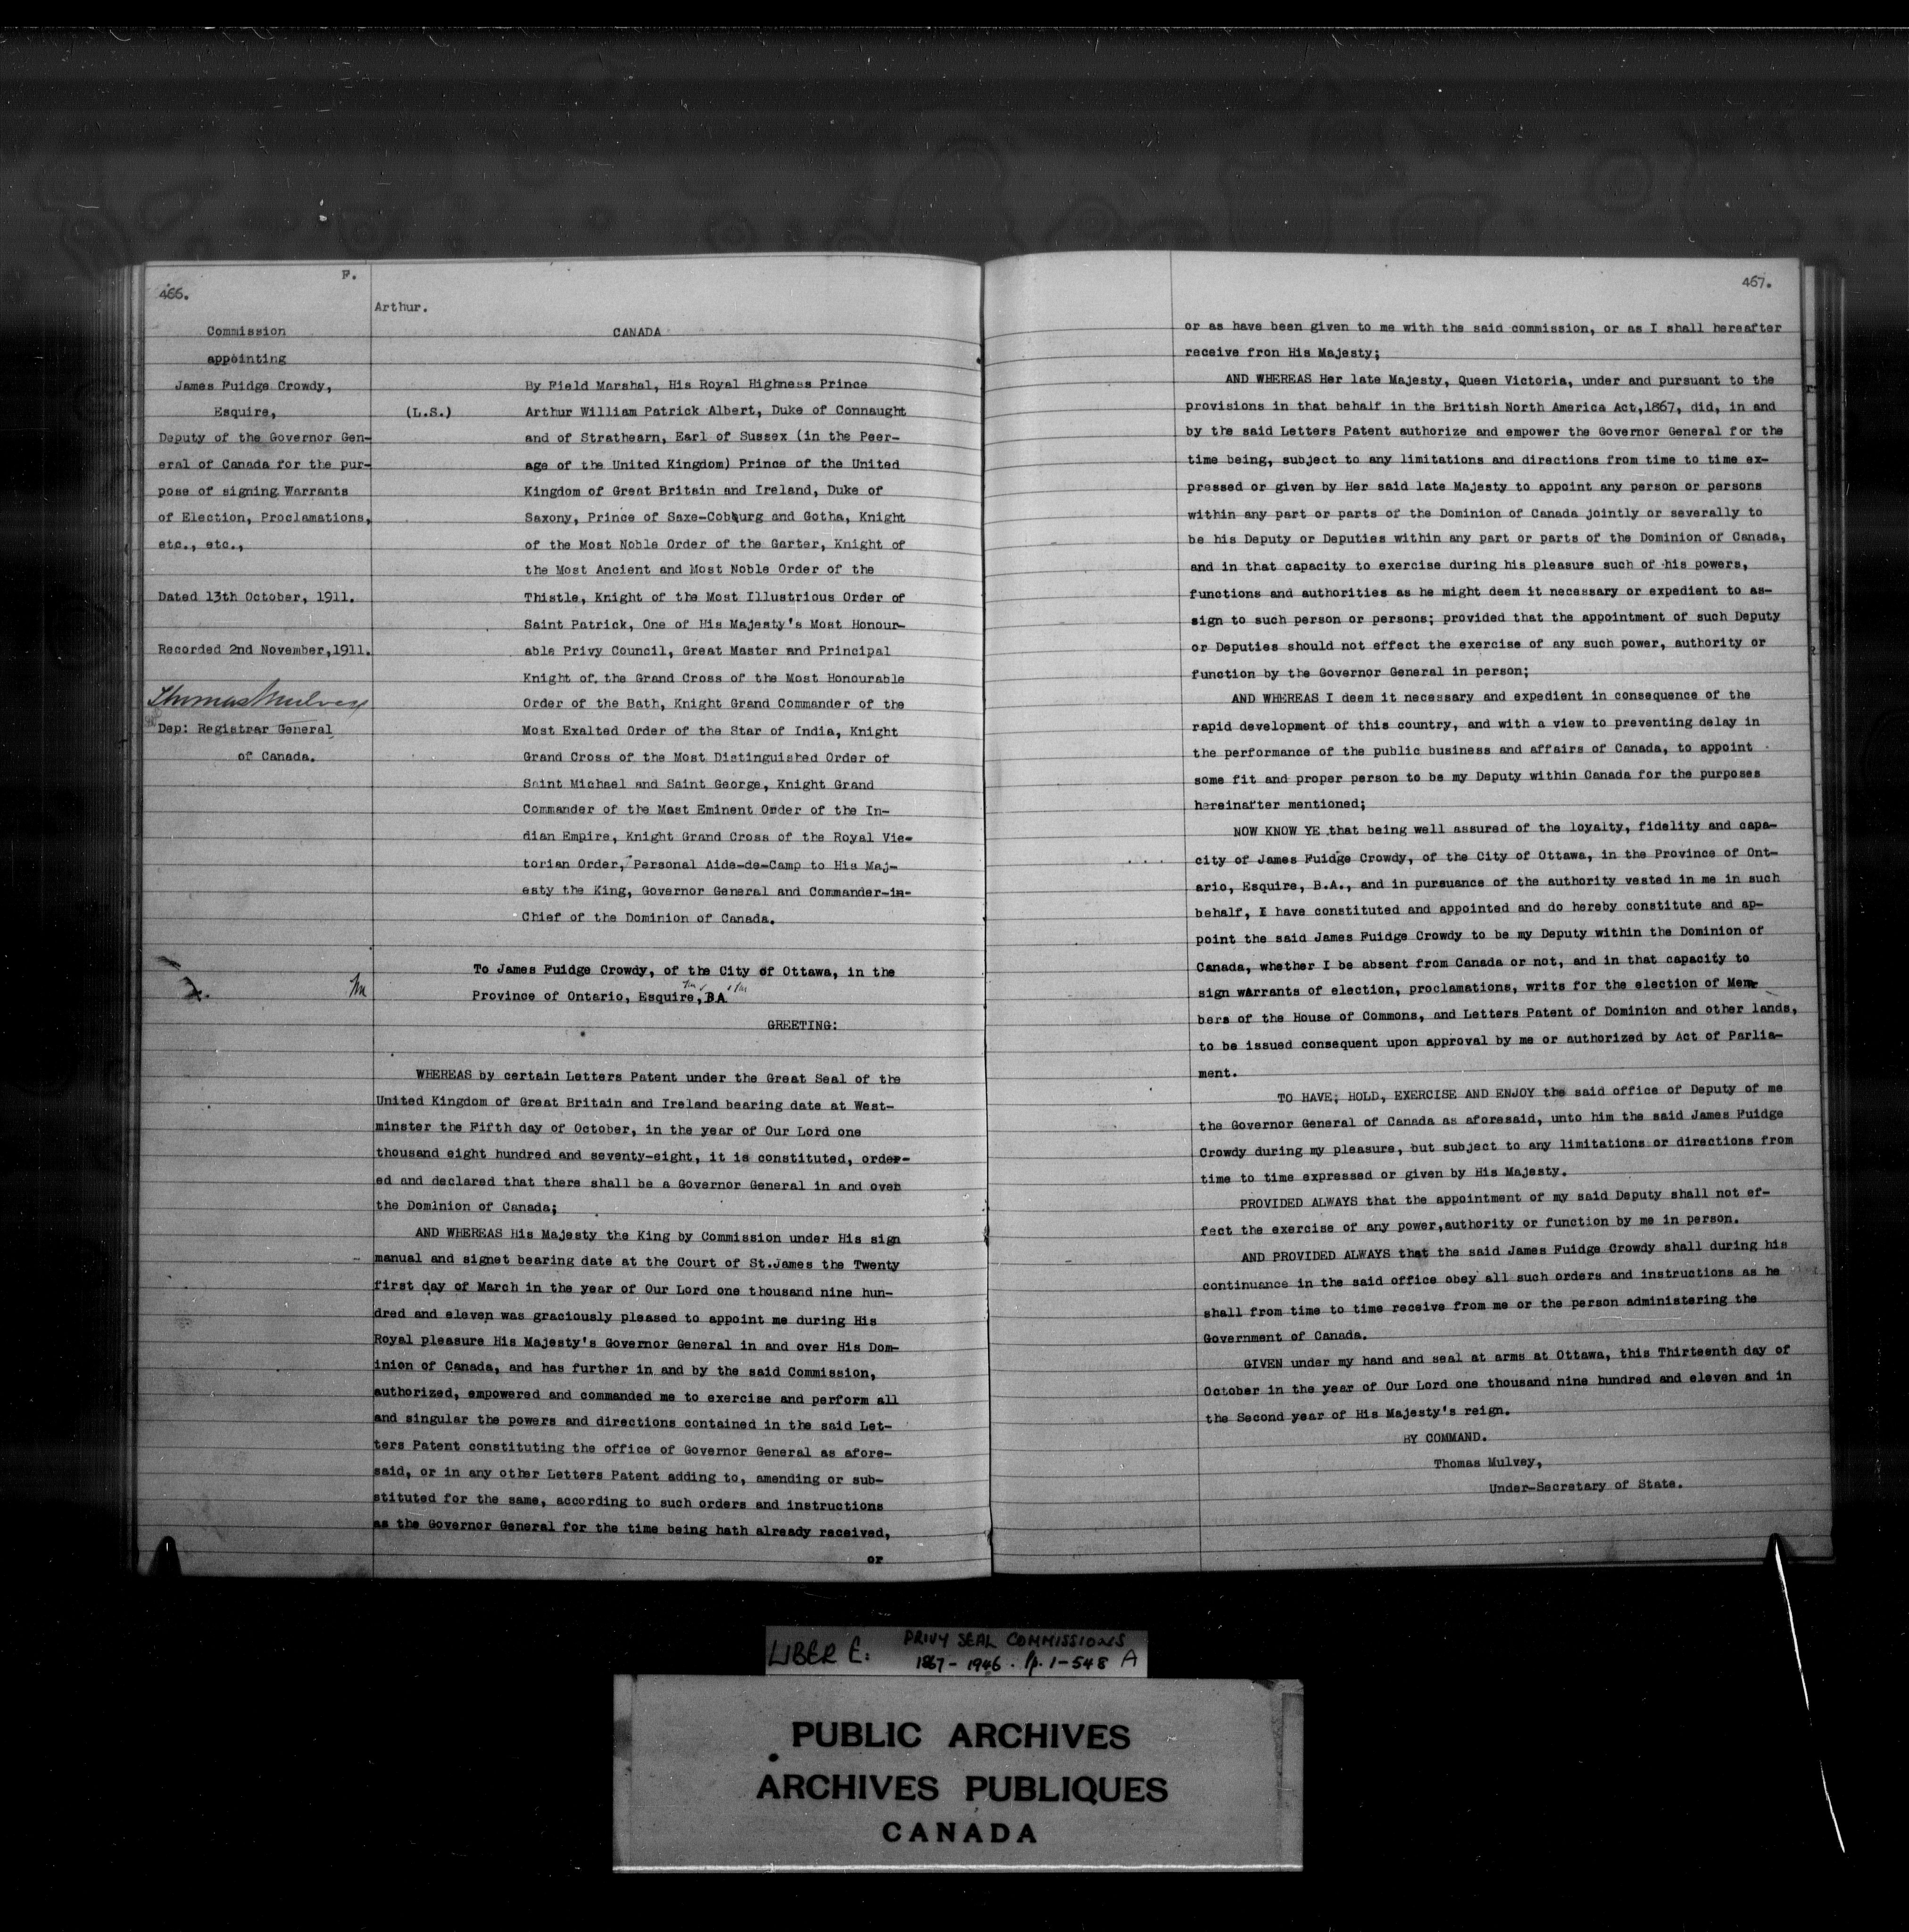 466.
F.
Commission
appointing
James Fuidge Crowdy,
Esquire,
Deputy of the Governor Gen-
eral of Canada for the pur-
pose of signing Warrants
of Election, Proclamations,
etc., etc.,
Dated 13th October, 1911.
Recorded 2nd November,1911.
Thomas Mulvey
Dep: Registrar General
of Canada.
Arthur.
CANADA
(L.S.)
By Field Marshal, His Royal Highness Prince
Arthur William Patrick Albert, Duke of Connaught
and of Strathearn, Earl of Sussex (in the Peer-
age of the United Kingdom) Prince of the United
Kingdom of Great Britain and Ireland, Duke of
Saxony, Prince of Saxe-Cobourg and Gotha, Knight
of the Most Noble Order of the Garter, Knight of
the Most Ancient and Most Noble Order of the
Thistle, Knight of the Most Illustrious Order of
Saint Patrick, One of His Majesty's Most Honour-
able Privy Council, Great Master and Principal
Knight of the Grand Cross of the Most Honourable
Order of the Bath, Knight Grand Commander of the
Most Exalted Order of the Star of India, Knight
Grand Cross of the Most Distinguished Order of
Saint Michael and Saint George, Knight Grand
Commander of the Mast Eminent Order of the In-
dian Empire, Knight Grand Cross of the Royal Vic-
torian Order, Personal Aide-de-Camp to His Maj-
esty the King, Governor General and Commander-in-
Chief of the Dominion of Canada.
To James Fuidge Crowdy, of the City of Ottawa, in the
Tm
Province of Ontario, Esquire, BA
GREETING:
WHEREAS by certain Letters Patent under the Great Seal of the
United Kingdom of Great Britain and Ireland bearing date at West-
minster the Fifth day of October, in the year of Our Lord one
thousand eight hundred and seventy-eight, it is constituted, order-
ed and declared that there shall be a Governor General in and over
the Dominion of Canada;
AND WHEREAS His Majesty the King by Commission under His sign
manual and signet bearing date at the Court of St.James the Twenty
first day of March in the year of Our Lord one thousand nine hun-
dred and eleven was graciously pleased to appoint me during His
Royal pleasure His Majesty's Governor General in and over His Dom-
inion of Canada, and has further in and by the said Commission,
authorized, empowered and commanded me to exercise and perform all
and singular the powers and directions contained in the said Let-
ters Patent constituting the office of Governor General as afore-
said, or in any other Letters Patent adding to, amending or sub-
stituted for the same, according to such orders and instructions
as the Governor General for the time being hath already received,
or
467.
or as have been given to me with the said commission, or as I shall hereafter
receive fron His Majesty;
AND WHEREAS Her late Majesty, Queen Victoria, under and pursuant to the
provisions in that behalf in the British North America Act,1867, did, in and
by the said Letters Patent authorize and empower the Governor General for the
time being, subject to any limitations and directions from time to time ex-
pressed or given by Her said late Majesty to appoint any person or persons
within any part or parts of the Dominion of Canada jointly or severally to
be his Deputy or Deputies within any part or parts of the Dominion of Canada,
and in that capacity to exercise during his pleasure such of his powers,
functions and authorities as he might deem it necessary or expedient to as-
sign to such person or persons; provided that the appointment of such Deputy
or Deputies should not effect the exercise of any such power, authority or
function by the Governor General in person;
AND WHEREAS I deem it necessary and expedient in consequence of the
rapid development of this country, and with a view to preventing delay in
the performance of the public business and affairs of Canada, to appoint
some fit and proper person to be my Deputy within Canada for the purposes
hereinafter mentioned;
NOW KNOW YE that being well assured of the loyalty, fidelity and capa-
city of James Fuidge Crowdy, of the City of Ottawa, in the Province of Ont-
ario, Esquire, B.A., and in pursuance of the authority vested in me in such
behalf, I have constituted and appointed and do hereby constitute and ap-
point the said James Fuidge Crowdy to be my Deputy within the Dominion of
Canada, whether I be absent from Canada or not, and in that capacity to
sign warrants of election, proclamations, writs for the election of Mem-
bers of the House of Commons, and Letters Patent of Dominion and other lands,
to be issued consequent upon approval by me or authorized by Act of Parlia-
ment.
TO HAVE; HOLD, EXERCISE AND ENJOY the said office of Deputy of me
the Governor General of Canada as aforesaid, unto him the said James Fuidge
Crowdy during my pleasure, but subject to any limitations or directions from
time to time expressed or given by His Majesty.
PROVIDED ALWAYS that the appointment of my said Deputy shall not ef-
fect the exercise of any power,authority or function by me in person.
AND PROVIDED ALWAYS that the said James Fuidge Crowdy shall during his
continuance in the said office obey all such orders and instructions as he
shall from time to time receive from me or the person administering the
Government of Canada.
GIVEN under my hand and seal at arms at Ottawa, this Thirteenth day of
October in the year of Our Lord one thousand nine hundred and eleven and in
the Second year of His Majesty's reign.
BY COMMAND.
Thomas Mulvey,
Under-Secretary of State.
LIBER E: PRIVY SEAL COMMISSIONS
1867-1946. Pp. 1-548 A
PUBLIC ARCHIVES
ARCHIVES PUBLIQUES
CANADA